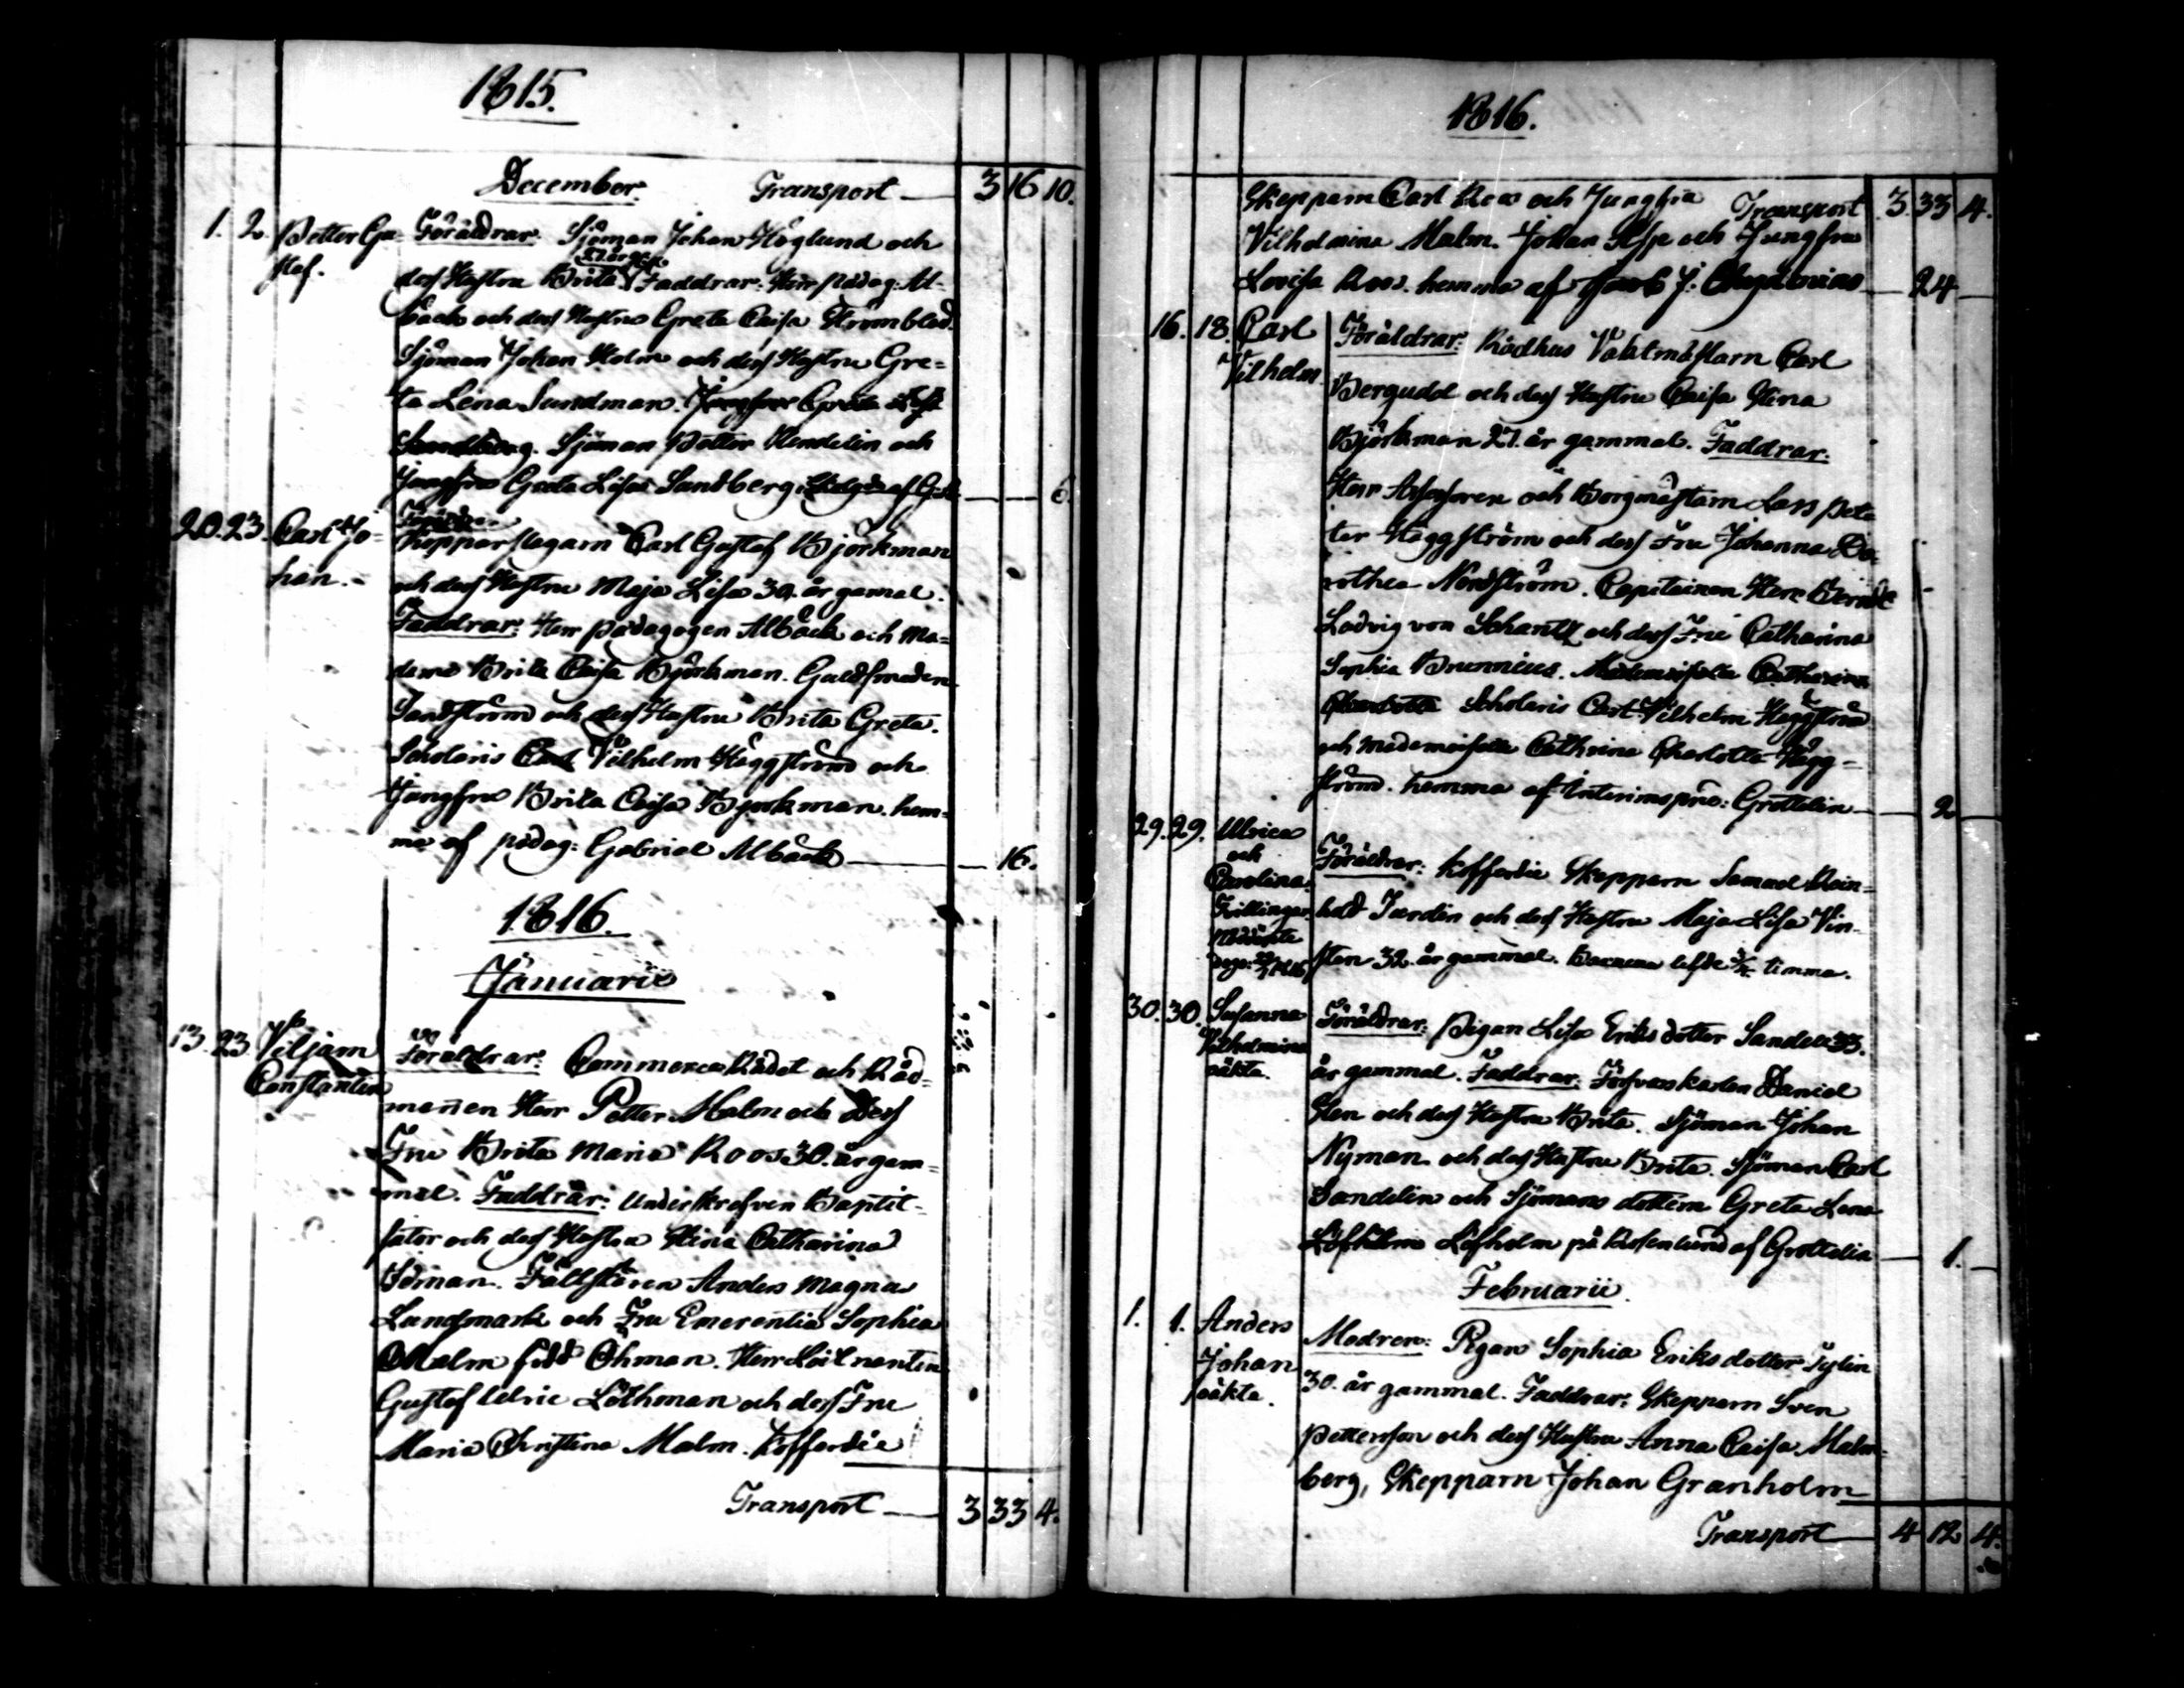 1815.
December. Transport — 3 16 10.
1. 2. Petter Gu- Föräldrar: Sjöman Johan Höglund och
staf. dess Hustru Brita Faddrar: Herr pædag: Al-
bäck och dess Hustru Greta Caisa Strömblad.
Sjöman Johan Holm och dess Hustru Gre=
ta Lena Sundman. Jungfru Greta Lisa
Sandberg. Sjöman Petter Wendelin och
Jungfru Greta Lisa Sandberg. — 6.
20. 23. Carl Jo= Föräldrar
han. Kopparslagarn Carl Gustaf Björkman
och dess Hustru Maja Lisa 30. år gamal.
Faddrar: Herr Pædagogen Albäck och Ma=
dame Brita Caisa Björkman. Guldsmeden
Sandström och dess Hustru Brita Greta.
Scholaris Carl Vilhelm Häggström och
Jungfru Brita Caisa Björkman. hem-
ma af pædag: Gabriel Albäck — 16.
1816.
Januarii
13. 23. Viljam Föräldrar: Commerce Rådet och Råd-
Constantin
mannen Herr Petter Malm och Dess
Fru Brita Maria Roos 30. år gam=
mal. Faddrar: Underskrefven Baptit-
sator och dess Hustru Stina Catharina
Idman. Fältskären Anders Magnus
Landmark och Fru Emerentia Sophia
Malm född Öhman. Herr Löitnanten
Gustaf Ulric Löthman och dess Fru
Maria Christina Malm. Kofferdie
Transport — 3 33 4.
1816.
Skepparn Carl Roos och Jungfru Transport 3. 33 4.
Vilhelmina Malm. Johan Asp och Jungfru
Lovisa Roos. hemma af Jacob J: — 24 —
16. 18. Carl Föräldrar: Rådhus Vaktmästarn Carl
Vilhelm
Bergudd och dess Hustru Caisa Stina
Björkman 27. år gammal. Faddrar:
Herr Assessoren och Borgmästarn Lars Pet=
ter Häggström och dess Fru Johanna Do-
rothea Nordström. Capitainen Herr Berndt
Ludvig von Schantz och dess Fru Catharina
Sophia Brunnius. Mademoiselle Catharina
Charlotta Scholaris Carl Vilhelm Häggström
och Mademoiselle Cathrina Charlotta Hägg=
ström. hemma af Interimspre: Grottelin — 2
29. 29. Ulrica
och
Carolina. Föräldrar: Kofferdie Skepparn Samuel Rein-
Tvillingar. hold Jurdin och dess Hustru Maja Lisa Vin-
Nöddöpte
sten 32. år gammal. Barnen lefde timma.
30. 30. Susanna Föräldrar: Pigan Lisa Eriks dotter Sandell 33.
Vilhelmina
oäkta. år gammal. Faddrar: Försvarskarlen Daniel
Sten och dess Hustru Brita. Sjöman Johan
Nyman och dess Hustru Brita. Sjöman Carl
Sandelin och Sjömans dottern Greta Lena
Löfholm Löfholm på Rosenlund af Grottelin — 1. —
Februarii.
1. 1. Anders Modren: Pigan Sophia Eriks dotter Sylin
Johan 30. år gammal. Faddrar: Skepparn Sven
oäkta. Petterson och dess Hustru Anna Caisa Malm-
berg, Skepparn Johan Granholm
Transport — 4 12 4.